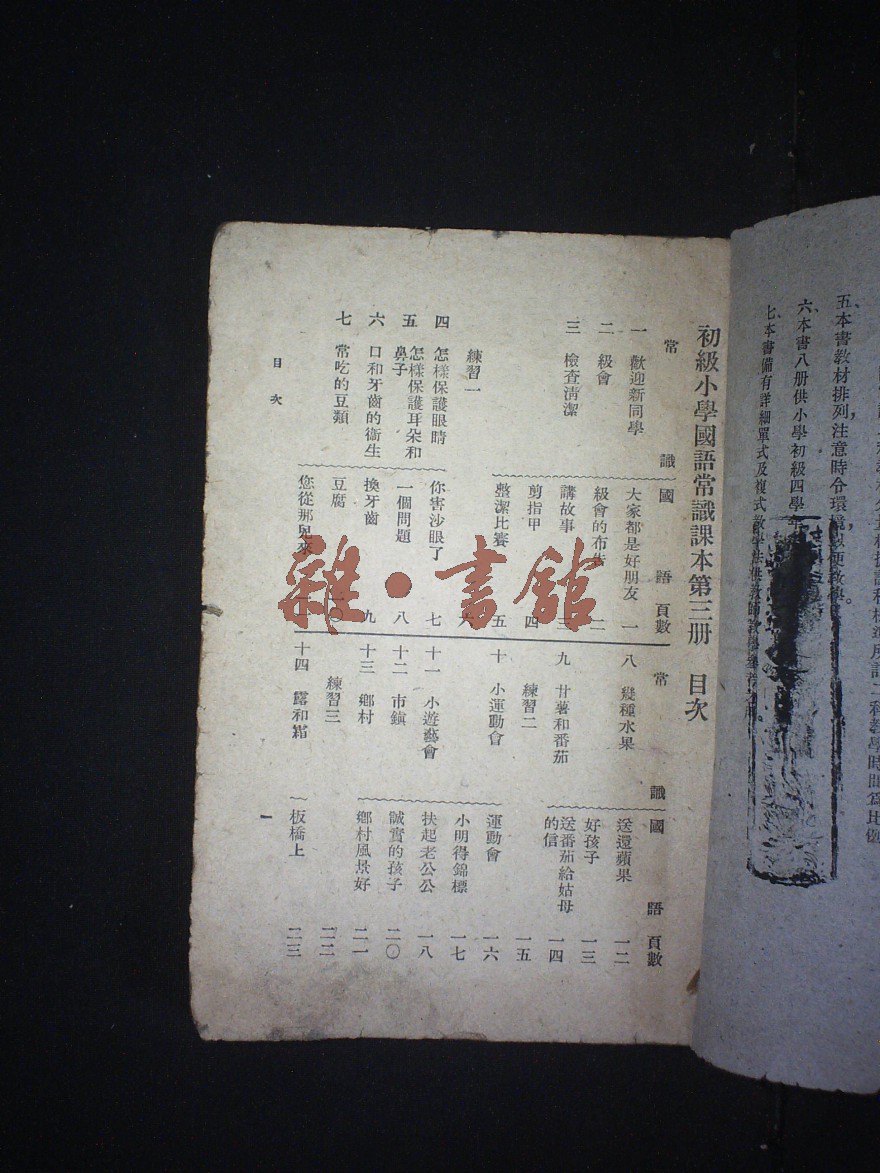 所訂二科教學時間爲比例
五、本書教材排列，注意時令環境，以便教學。
六、本書八册供小學初級四學年
七、本書備有詳細單式及複式教學法供教師教學
初級小學國語常識課本第三册 目次
常識 國語 頁數
一 歡迎新同學 大家都是好朋友 一
二 級會 級會的布告 二
三 檢查清潔 講故事 三
剪指甲 四
整潔比賽 五
練習一 六
四 怎樣保護眼睛 你害沙眼了 七
五 怎樣保護耳朵和
鼻子 一個問題 八
六 口和牙齒的衞生 換牙齒 九
七 常吃的豆類 豆腐 一〇
您從那兒來
常識 國語 頁數
八 幾種水果 送還蘋果 一二
好孩子 一三
九 甘薯和番茄 送番茄給姑母
的信 一四
練習二 一五
十 小運動會 運動會 一六
小明得錦標 一七
十一 小遊藝會 扶起老公公 一八
十二 市鎮 誠實的孩子 二〇
十三 鄉村 鄉村風景好 二一
練習三 二二
十四 露和霜 板橋上 二三
目次 一
雜·書館